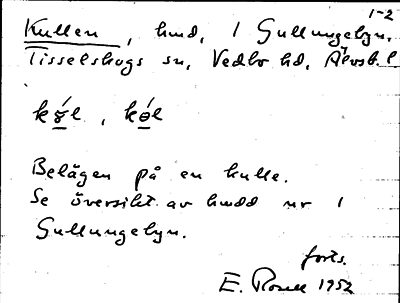 1-2
Kullen, hmd, 1 Gullungebyn,
Tisselskogs sn, Vedbo hd, Älvsb. l
Belägen på en kulle.
Se översikt av hmdd nr 1
Gullungebyn.
forts.
E. Rosell 1952